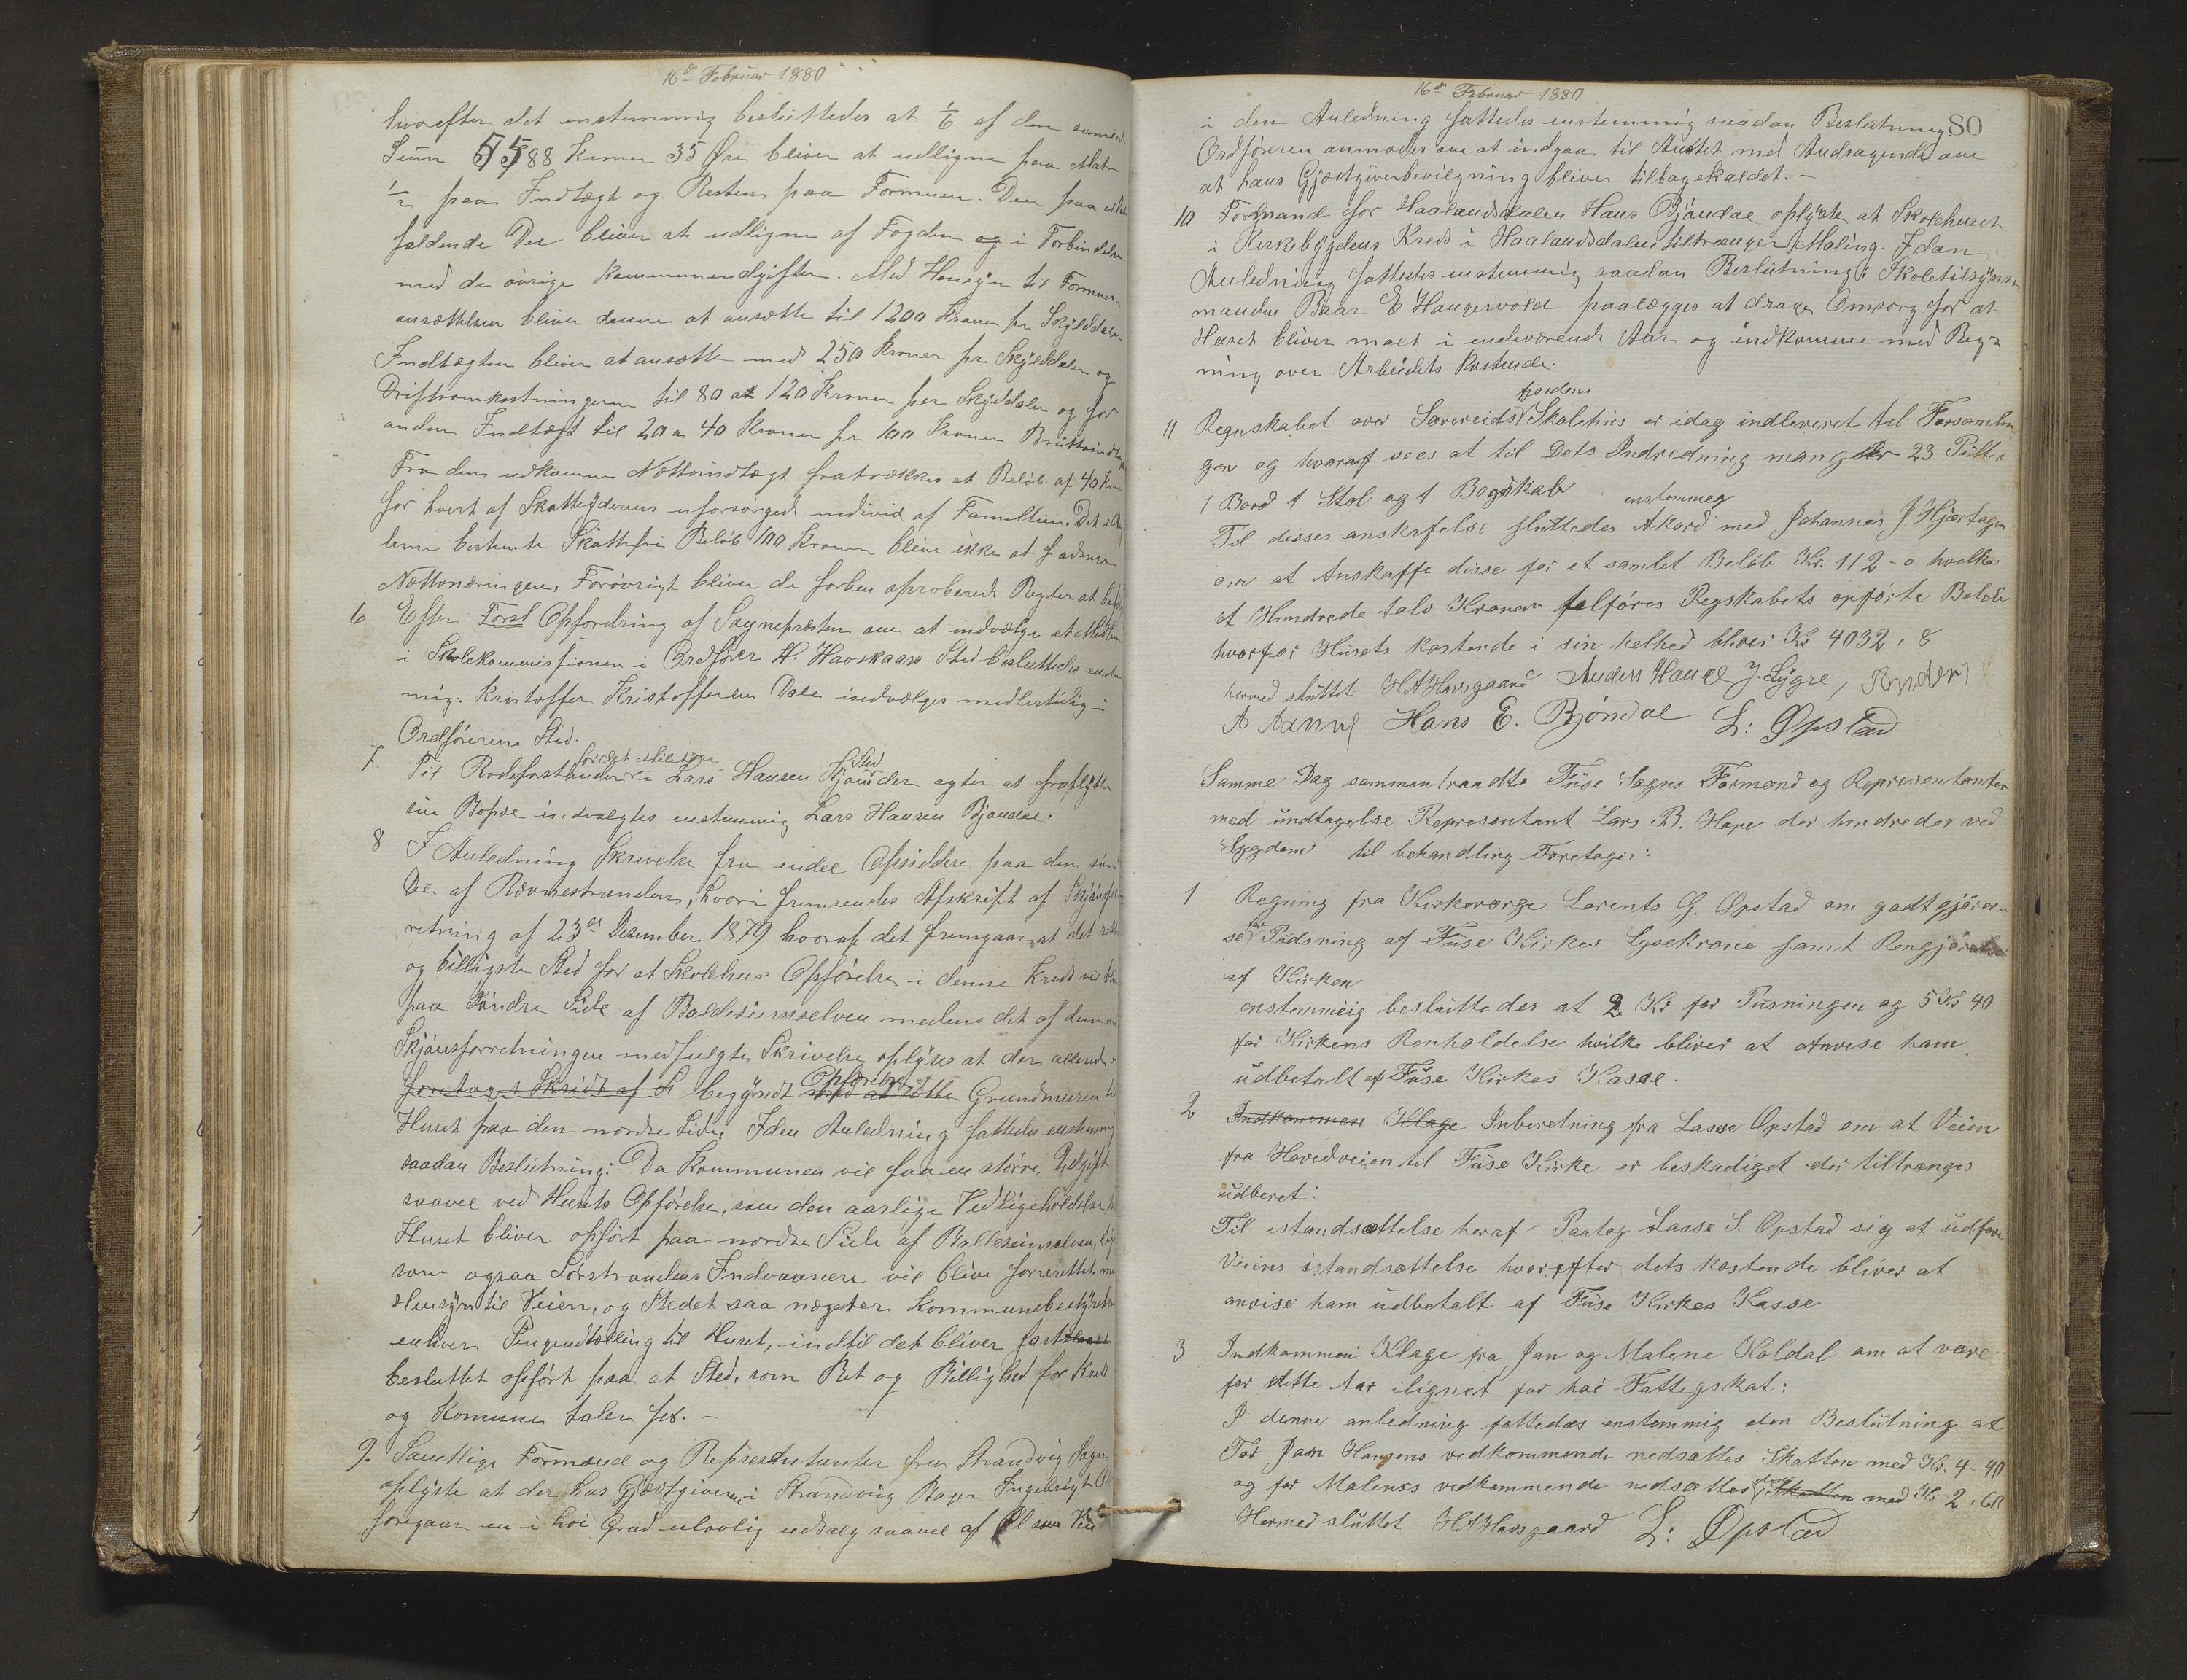 16d Februar 1880
hvorefter det enstemmig besluttedes at 1/6 af den samlede
Sum 5588 Kroner 35 Øre bliver at udligne paa Matr
1/2 paa Indtægt og Resten paa Formuen. Den paa
faldende Del bliver at udligne af Fogden og i Forbindelse
med de øvrige Kommuneudgifter. Med Hensyn til Formues
ansættelsen bliver denne at ansætte til 1200 Kroner pr Skylddaler
Indtægten bliver at ansætte med 250 Kroner pr Skylddaler og
Driftsomkostningerne til 80 a 120 Kroner per Skylddaler og for
anden Indtægt til 20 a 40 Kroner pr 100 Kroner Bruttoindtægt
Fra den udkomne Nettoindtægt fratrækkes et Beløb af 40 Kroner
for hvert af Skatteyderens uforsørgede individ af Familien. Det i
lerne bestemte Skattefri Beløb 100 Kroner blive ikke at fradrage
Nettonæringen. Forøvrigt bliver de forhen aproberede Regler at
6 Efter Forsl Opfordring af Sognepræsten om at indvælge et Medlem
i Skolekommissionen i Ordfører H. Havskaars Sted besluttedes enstem
mig: Kristoffer Kristoffersen Dale indvælges midlertidig i
Ordførerens Sted.
7. Til Rodeforstander i Lars Hansen Kjanders Sted agter at fraflytte
sin Bopæl indvalgtes enstemmig Lars Hansen Bjøndal.
8 I Anledning Skrivelse fra endel Opsiddere paa den søn
Del af Rivnestranden, hvori fremsendes Afskrift af Skjønsfor-
retning af 23de Desember 1879 hvoraf det fremgaar, at det
og billigste Sted for et Skolehus Opførelse i denne Kreds vil
paa Søndre Side af Baldesiumselven medens det af den
Skjønsforretningen medfulgte Skrivelse oplyses at der allerede
foretaget Skridt af begyndt Opførelse med at sætte Grundmuren
Huset paa den nordre Side. I den Anledning fattedes enstemmig
saadan Beslutning: Da Kommunen vil faa en større Udgift
saavel ved Husets Opførelse, som den aarlige Vedligeholdelse,
Huset bliver opført paa nordre Side af Balleseimselven, lige
som ogsaa Sørstrandens Indvaanere vil blive forurettet
Hensyn til Veien, og Stedet saa nægter Kommunebestyrelsen
enhver Pengeudtælling til Huset, indtil det bliver fast
besluttet opført paa et Sted, som Ret og Billighed for Kreds
og Komune taler for. –
9. Samttlige Formænd og Representanter fra Strandvig Sogn
oplyste at der hos Gjæstgiveren i Strandvig Roger Ingebrigt
foregaar en i høi Grad ulovlig udsalg saavel af Øl som Vin
16de Februar 1880
80
i den Anledning fattedes enstemmig saadan Beslutning:
Ordføreren anmodes om at indgaa til Amtet med Andragende om
at hans Gjæstgiverbevilgning bliver tilbagekaldet. –
10 Formand for Haalandsdalen Hans Bjøndal oplyste at Skolehuset
i Kirkebygdens Kreds i Haalandsdalen tiltrænger Maling. I den
Anledning fattedes enstemmig saadan Beslutning: Skoletilsyns
manden Baar E Haugesvold paalægges at drage Omsorg for at
Huset bliver malt i indeværende Aar og indkomme med Reg=
ning over Arbeidets Kostende.
11 Regnskabet over Sævereidsfjordens Skolehus er idag indleveret til Forsamlin
gen og hvoraf sees at til Dets Indredning mangler 23 Pulte
1 Bord 1 Stol og 1 Bogskab
Til disses anskafelse sluttedes enstemmeg Akord med Johannes J Hjertager
om at Anskaffe disse for et samlet Beløb Kr. 112 - 0 hvilke
et Hundrede tolv Kroner tilføres Regskabets opførte Beløb
hvorfor Husets kostende i sin helhed bliver Kr 4032, 8
hermed sluttet H A Havsgaard Anders Hauge J. Lygre,
Hans E. Bjøndal L: Øpstad
Samme Dag sammentraadte Fuse Sogns Formænd og Representanter
med undtagelse Representant Lars B. Hope der hindredes ved
Sygdom til behandling Foretages:
1 Regning fra Kirkeværge Lorents G. Opstad om godtgjørel-
se for Pudsning af Fuse Kirkes Lysekrone samt Rengjørelse
af Kirken
enstemmeig besluttedes at 2 Kr for Pusningen og 5 Kr 40
for Kirkens Renholdelse hvilke bliver at Anvise ham
udbetalt af Fuse Kirkes Kasse.
2 Indkommen Klage Inberetning fra Lasse Opstad om at Veien
fra Hovedveien til Fuse Kirke er beskadiget der tiltrænges
udberet:
Til istandsættelse heraf Paatog Lasse S. Opstad sig at udføre
Veiens istandsættelse hvorefter dets kostende bliver at
anvise ham udbetalt af Fuse Kirkes Kasse
3 Indkommen Klage fra Jan og Malene Koldal om at være
for dette Aar ilignet for høi Fattegskat:
I denne anledning fattedes enstemmig den Beslutning at
For Jan Hansens vedkommende nedsættes Skatten med Kr. 4 - 40
og for Malenes vedkommende nedsættes den Skatten med Kr 2,60
Hermed sluttet H A Havsgaard L: Øpstad